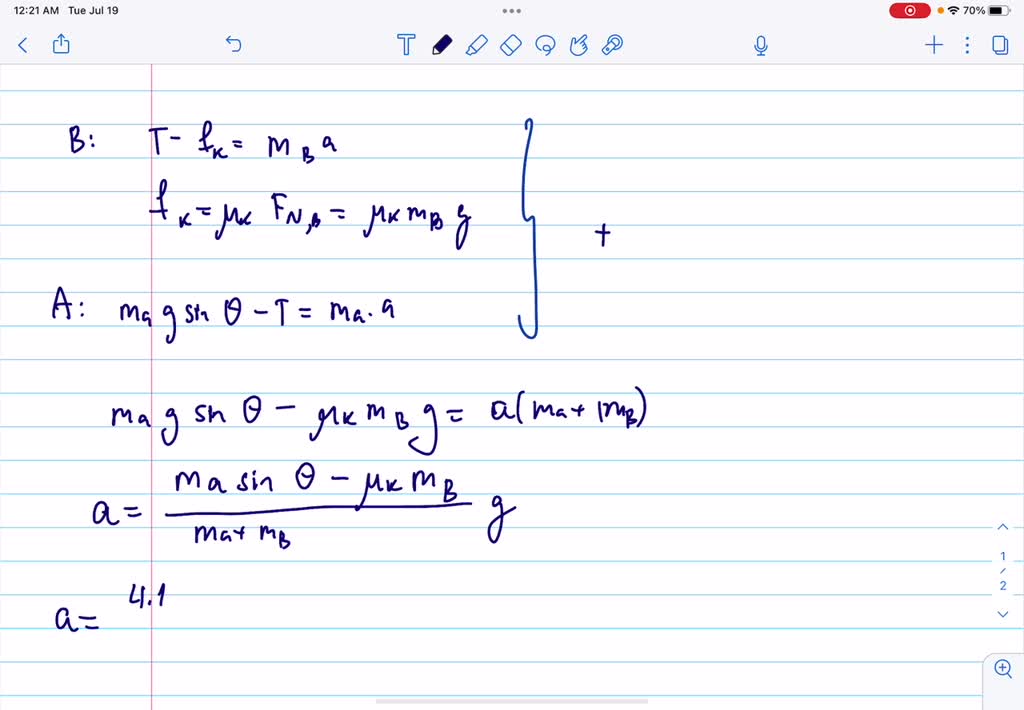 12:21 AM Tue Jul 19
70%
B: T - fₖ = m_B a
fₖ = μₖ F_N,B = μₖ m_B g
+
A: mₐ g sin θ - T = mₐ · a
mₐ g sin θ - μₖ m_B g = a(mₐ + m_B)
a = (mₐ sin θ - μₖ m_B) / (mₐ + m_B) g
1
/
2
4.1
a =